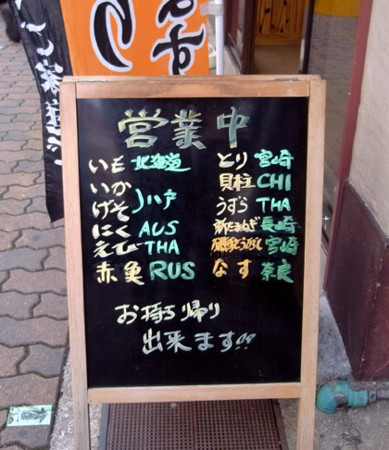 営業中
いも 北海道
いか
げそ 八戸
にく AUS
えび THA
赤魚 RUS
とり 宮崎
貝柱 CHI
うずら THA
新たまねぎ 長崎
宮崎
なす 奈良
お持ち帰り
出来ます!!